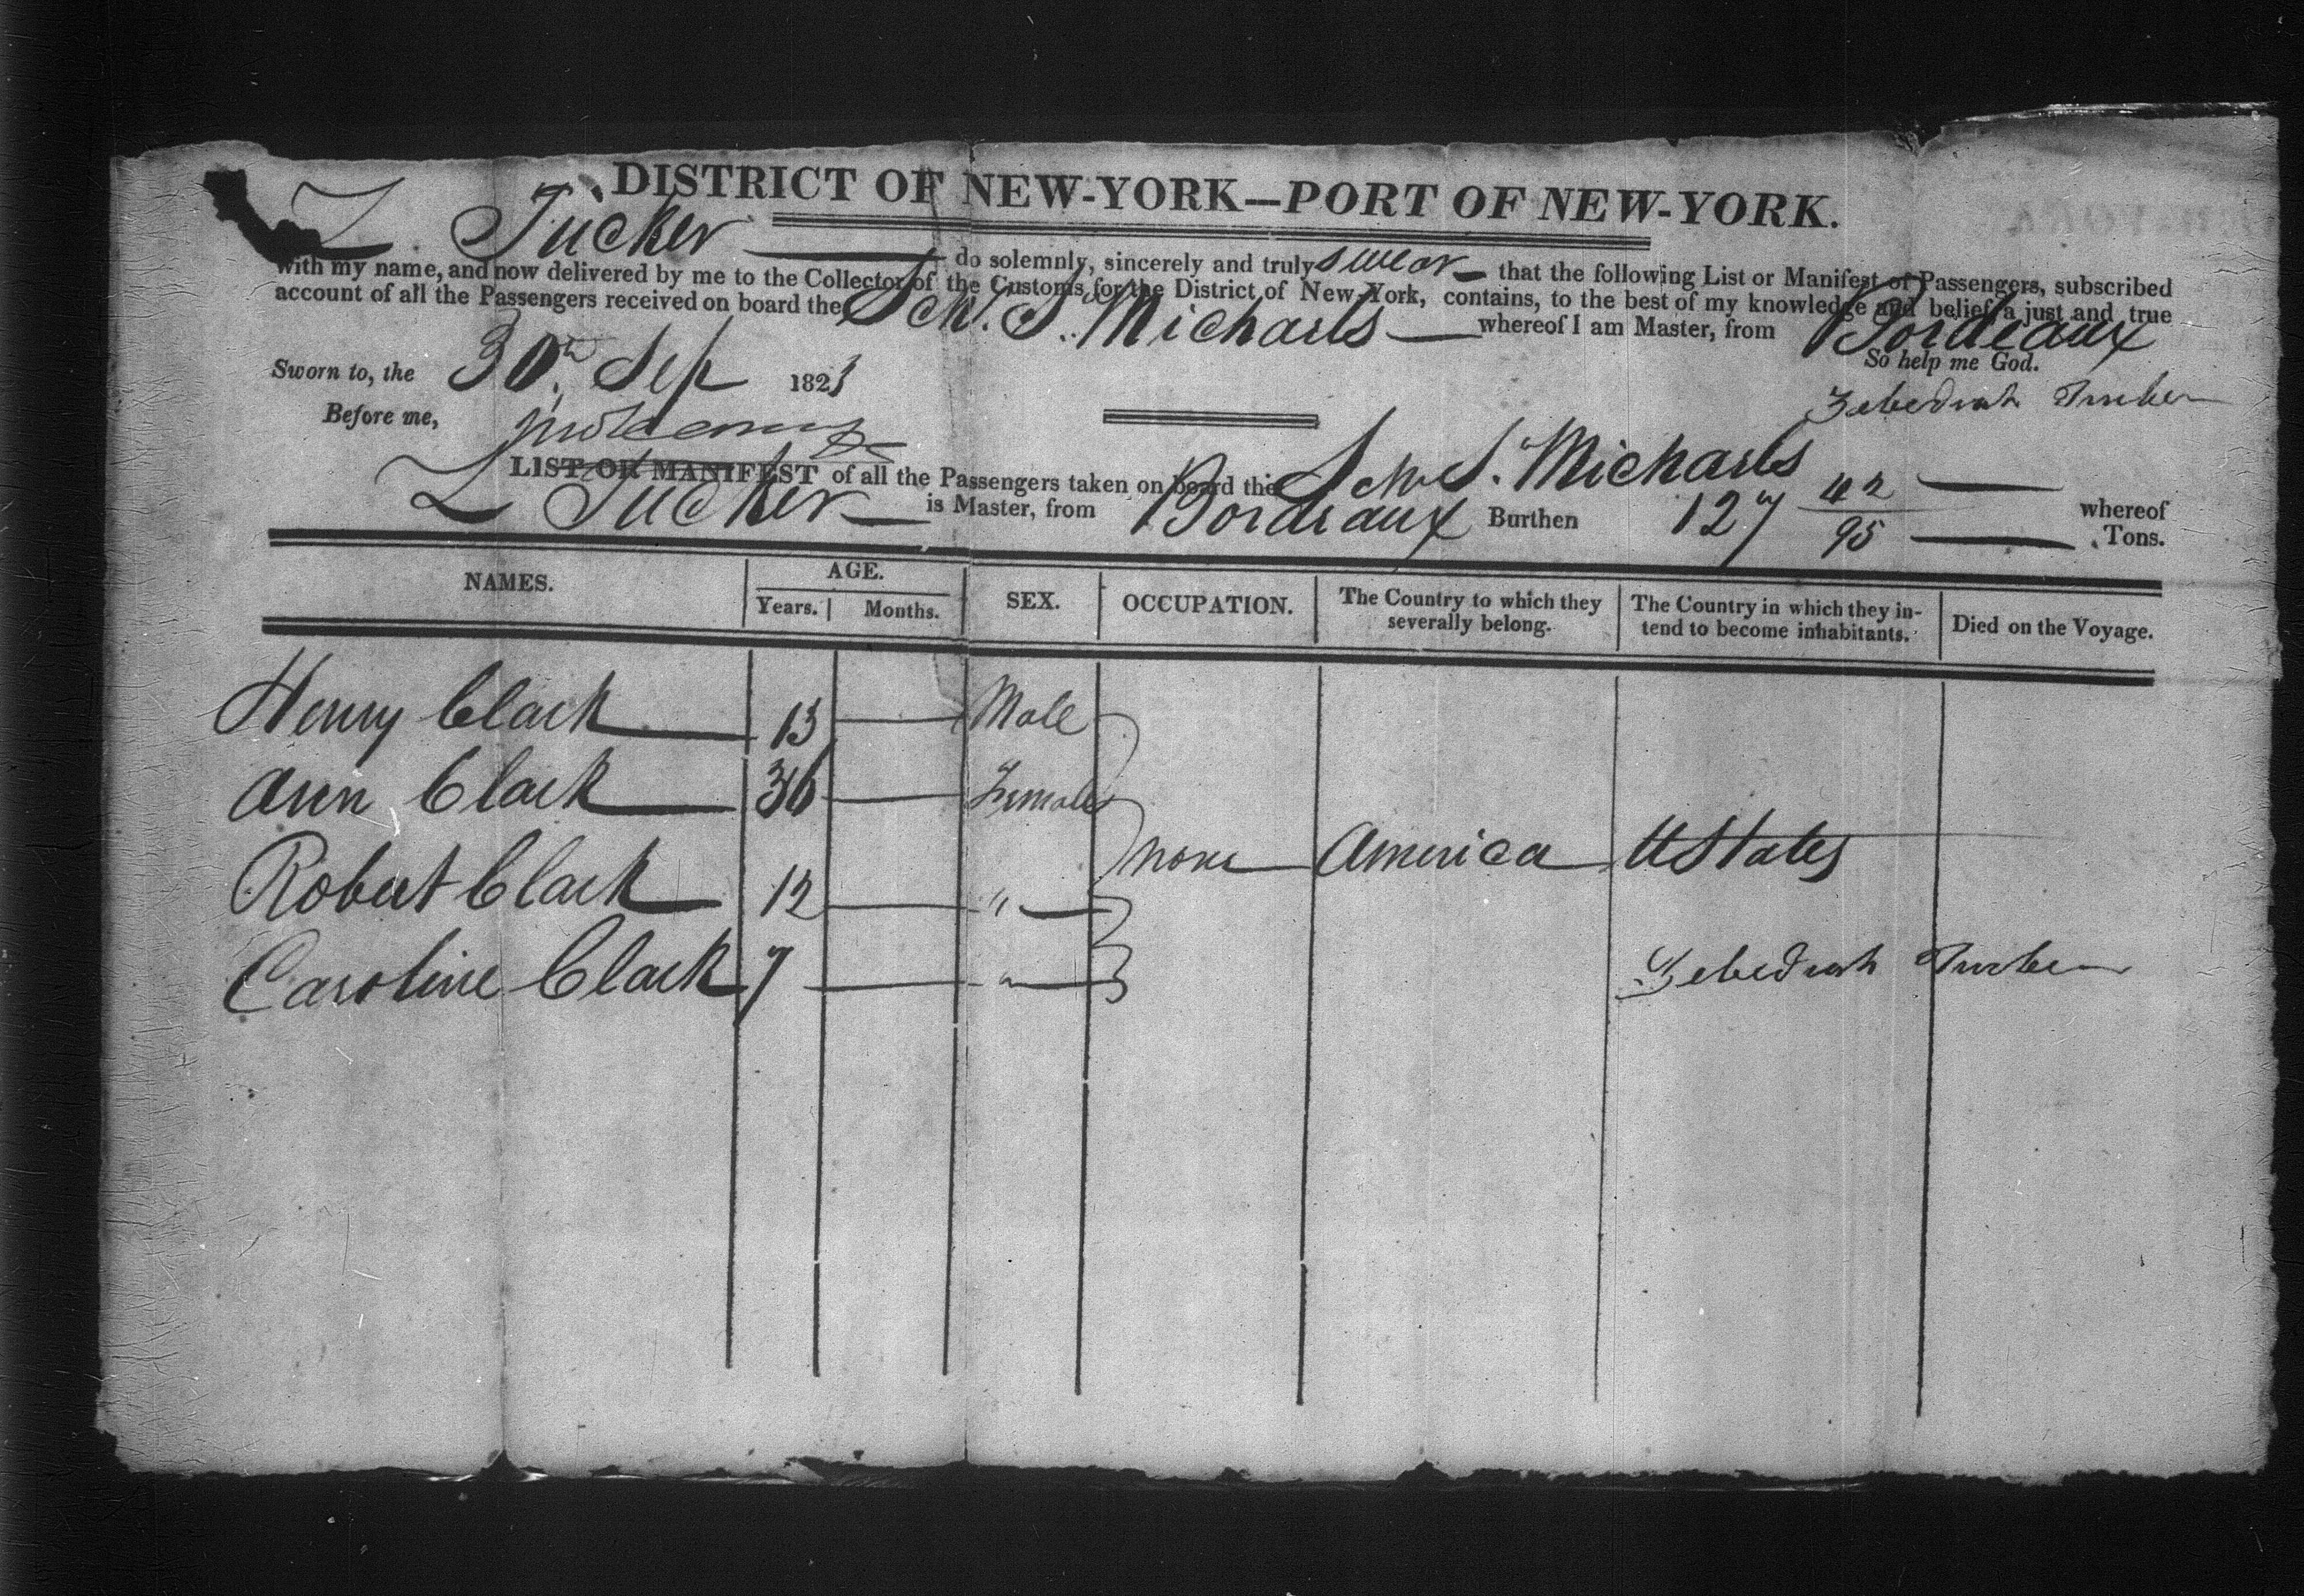 DISTRICT OF NEW-YORK—PORT OF NEW-YORK.
Z. Tucker do solemnly, sincerely and truly swear that the following List or Manifest of Passengers, subscribed
with my name, and now delivered by me to the Collector of the Customs for the District of New York, contains, to the best of my knowledge and belief, a just and true
account of all the Passengers received on board the Sch. S. Michaels whereof I am Master, from Bordeaux
So help me God.
Sworn to, the 30th Sep 1823
Zebediah Tucker
Before me,
LIST OR MANIFEST of all the Passengers taken on board the Sch S. Michaels whereof
Z Tucker is Master, from Bordeaux Burthen 127 42/95 Tons.
NAMES. AGE. Years. Months. SEX. OCCUPATION. The Country to which they severally belong. The Country in which they intend to become inhabitants. Died on the Voyage.
Henry Clark 13 Male
Ann Clark 36 Female
none America U States
Robert Clark 12 "
Caroline Clark 7 "
Zebediah Tucker